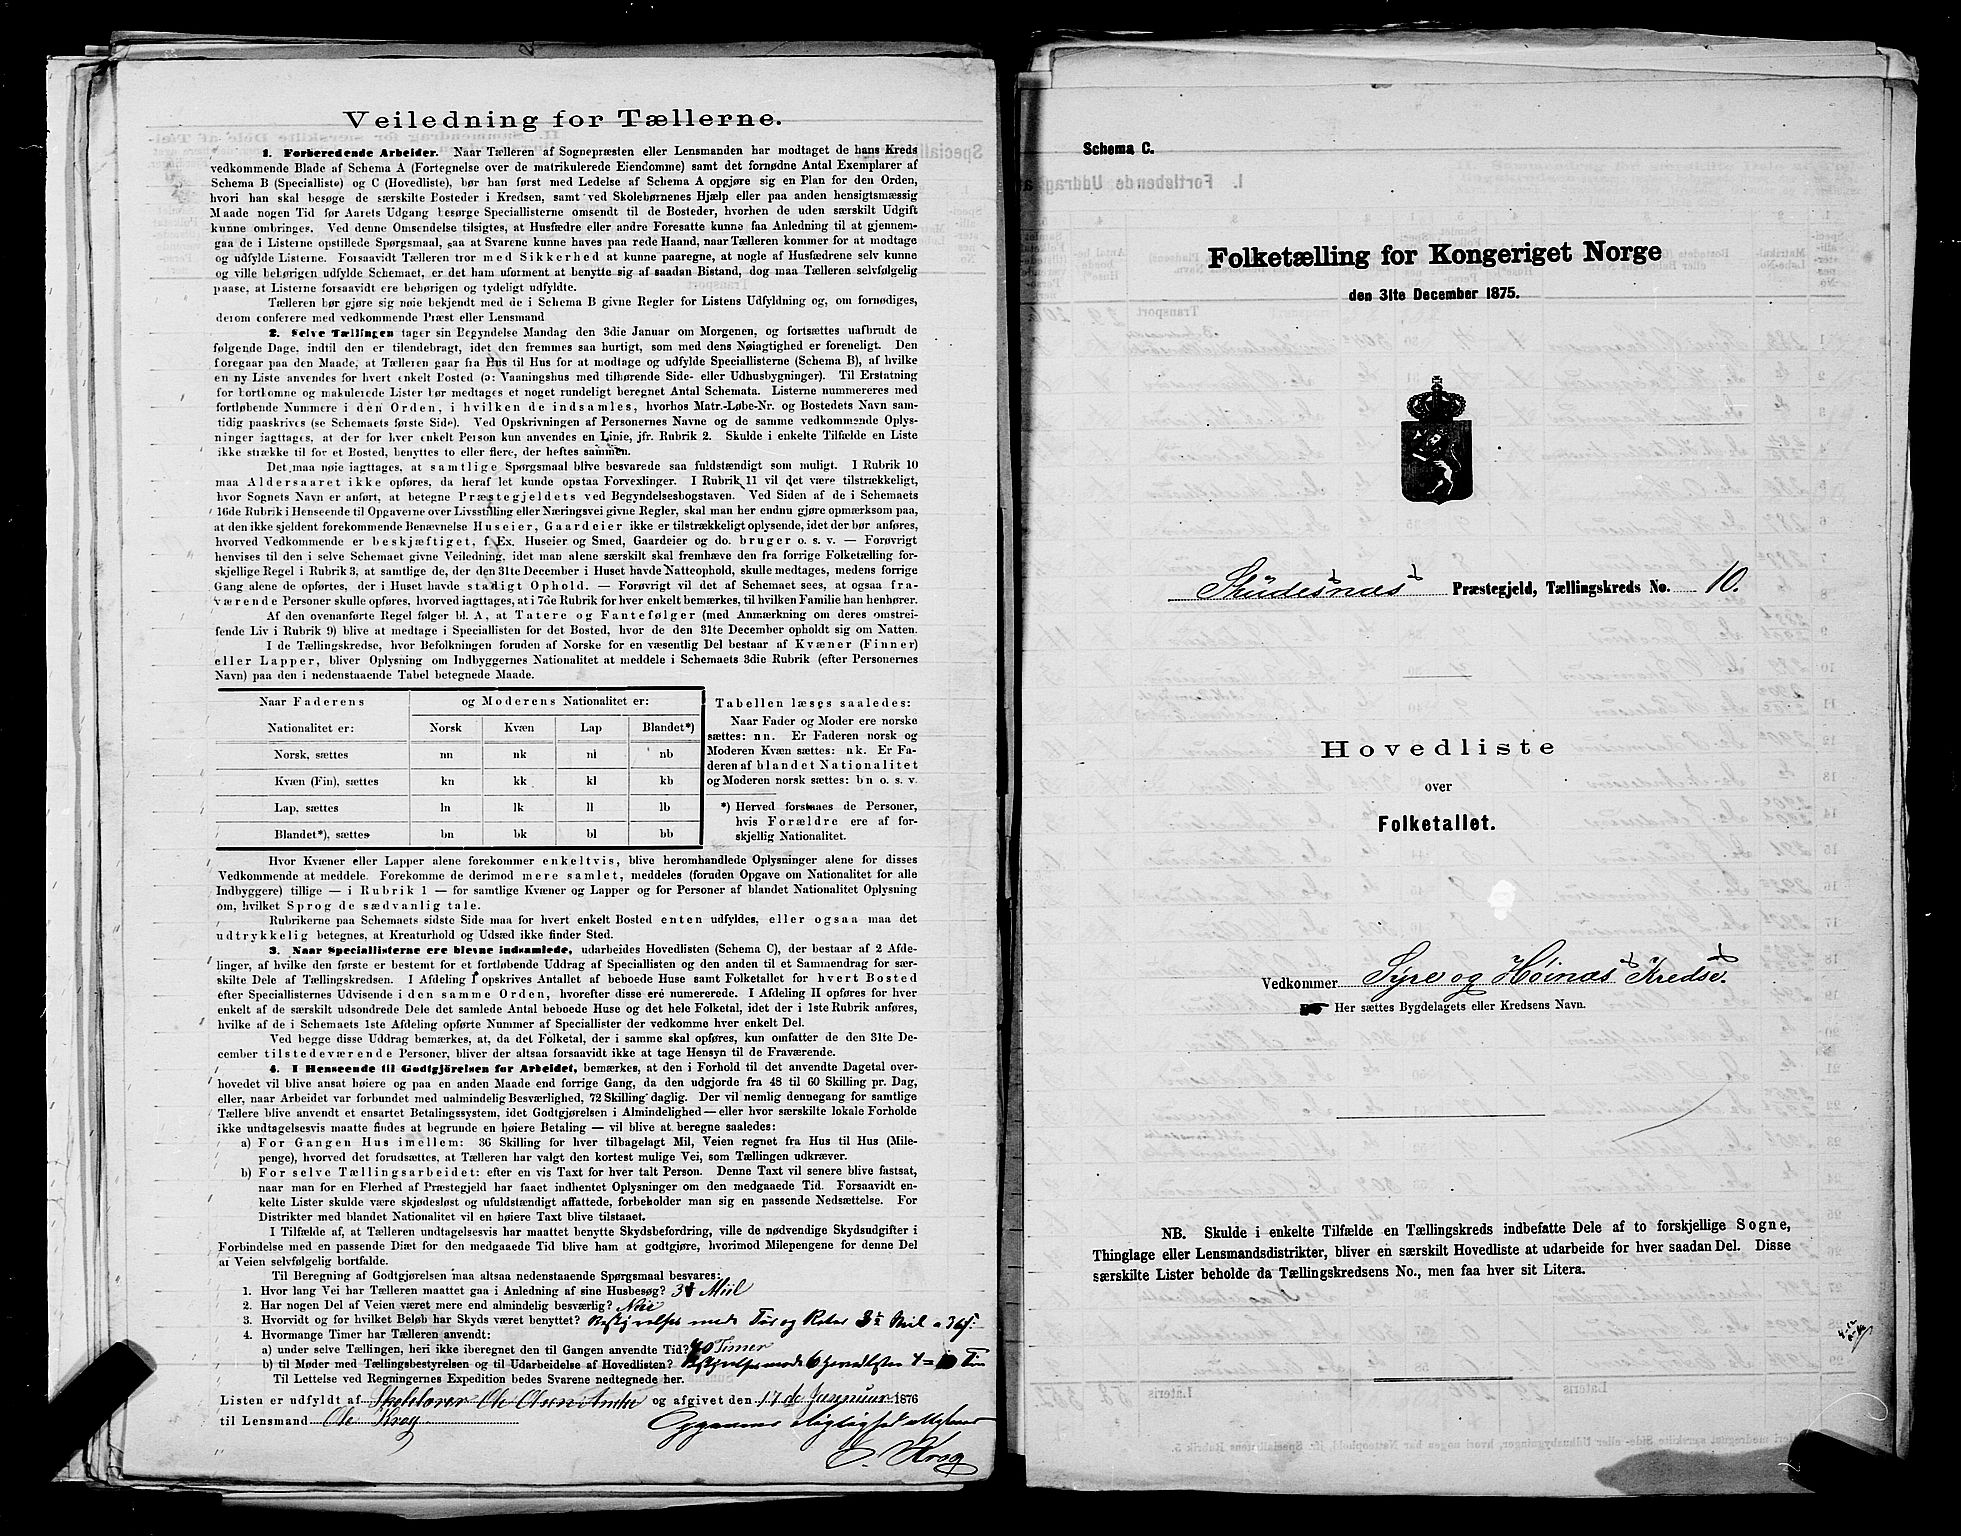 Veiledning for Tællerne.
1. Forberedende Arbeider. Naar Tælleren af Sognepræsten eller Lensmanden har modtaget de hans Kreds
vedkommende Blade af Schema A (Fortegnelse over de matrikulerede Eiendomme) samt det fornødne Antal Exemplarer af
Schema B (Specialliste) og C (Hovedliste), bør han først med Ledelse af Schema A opgjøre sig en Plan for den Orden,
hvori han skal besøge de særskilte Bosteder i Kredsen, samt ved Skolebørnenes Hjælp eller paa anden hensigtsmæssig
Maade nogen Tid før Aarets Udgang besørge Speciallisterne omsendt til de Bosteder, hvorhen de uden særskilt Udgift
kunne ombringes. Ved denne Omsendelse tilsigtes, at Husfædre eller andre Foresatte kunne faa Anledning til at gjennem-
gaa de i Listerne opstillede Spørgsmaal, saa at Svarene kunne haves paa rede Haand, naar Tælleren kommer for at modtage
og udfylde Listerne. Forsaavidt Tælleren tror med Sikkerhed at kunne paaregne, at nogle af Husfædrene selv kunne
og ville behørigen udfylde Schemaet, er det ham uforment at benytte sig af saadan Bistand, dog maa Tælleren selvfølgelig
paase, at Listerne forsaavidt ere behørigen og tydeligt udfyldte.
Tælleren bør gjøre sig nøie bekjendt med de i Schema B givne Regler for Listens Udfyldning og, om fornødiges,
derom conferere med vedkommende Præst eller Lensmand
2. Selve Tællingen tager sin Begyndelse Mandag den 3die Januar om Morgenen, og fortsættes uafbrudt de
følgende Dage, indtil den er tilendebragt, idet den fremmes saa hurtigt, som med dens Nøiagtighed er foreneligt. Den
foregaar paa den Maade, at Tælleren gaar fra Hus til Hus for at modtage og udfylde Speciallisterne (Schema B), af hvilke
en ny Liste anvendes for hvert enkelt Bosted (ɔ: Vaaningshus med tilhørende Side- eller Udhusbygninger). Til Erstatning
for bortkomne og makulerede Lister bør medtages et noget rundeligt beregnet Antal Schemata. Listerne nummereres med
fortløbende Nummere i den Orden, i hvilken de indsamles, hvorhos Matr.-Løbe-Nr. og Bostedets Navn sam-
tidig paaskrives (se Schemaets første Side). Ved Opskrivningen af Personernes Navne og de samme vedkommende Oplys-
ninger iagttages, at der for hver enkelt Person kun anvendes en Linie, jfr. Rubrik 2. Skulde i enkelte Tilfælde en Liste
ikke strække til for et Bosted, benyttes to eller flere, der heftes sammen.
Det maa nøie iagttages, at samtlige Spørgsmaal blive besvarede saa fuldstændigt som muligt. I Rubrik 10
maa Aldersaaret ikke opføres, da heraf let kunde opstaa Forvexlinger. I Rubrik 11 vil det være tilstrækkeligt,
hvor Sognets Navn er anført, at betegne Præstegjeldets ved Begyndelsesbogstaven. Ved Siden af de i Schemaets
16de Rubrik i Henseende til Opgaverne over Livsstilling eller Næringsvei givne Regler, skal man her endnu gjøre opmærksom paa,
at den ikke sjeldent forekommende Benævnelse Huseier, Gaardeier ikke er tilstrækkeligt oplysende, idet der bør anføres,
hvorved Vedkommende er beskjæftiget, f. Ex. Huseier og Smed, Gaardeier og do. bruger o. s. v. — Forøvrigt
henvises til den i selve Schemaet givne Veiledning, idet man alene særskilt skal fremhæve den fra forrige Folketælling for-
skjellige Regel i Rubrik 3, at samtlige de, der den 31te December i Huset havde Natteophold, skulle medtages, medens forrige
Gang alene de opførtes, der i Huset havde stadigt Ophold. — Forøvrigt vil det af Schemaet sees, at ogsaa fra-
værende Personer skulle opføres, hvorved iagttages, at i 7de Rubrik for hver enkelt bemærkes, til hvilken Familie han henhører.
Af den ovenanførte Regel følger bl. A, at Tatere og Fantefølger (med Anmærkning om deres omstrei-
fende Liv i Rubrik 9) blive at medtage i Speciallisten for det Bosted, hvor de den 31te December opholdt sig om Natten.
I de Tællingskredse, hvor Befolkningen foruden af Norske for en væsentlig Del bestaar af Kvæner (Finner)
eller Lapper, bliver Oplysning om Indbyggernes Nationalitet at meddele i Schemaets 3die Rubrik (efter Personernes
Navn) paa den i nedenstaaende Tabel betegnede Maade.
Naar Faderens og Moderens Nationalitet er:
Nationalitet er: Norsk Kvæn Lap Blandet*)
Norsk, sættes nn nk nl nb
Kvæn (Fin), sættes kn kk kl kb
Lap, sættes ln lk ll lb
Blandet*), sættes bn bk bl bb
Tabellen læses saaledes:
Naar Fader og Moder ere norske
sættes: nn. Er Faderen norsk og
Moderen Kvæn sættes: nk. Er Fa-
deren af blandet Nationalitet
og Moderen norsk sættes: bn o. s. v.
*) Herved forstaaes de Personer,
hvis Forældre ere af for-
skjellig Nationalitet.
Hvor Kvæner eller Lapper alene forekommer enkeltvis, blive heromhandlede Oplysninger alene for disses
Vedkommende at meddele. Forekomme de derimod mere samlet, meddeles (foruden Opgave om Nationalitet for alle
Indbyggere) tillige — i Rubrik 1 — for samtlige Kvæner og Lapper og for Personer af blandet Nationalitet Oplysning
om, hvilket Sprog de sædvanlig tale.
Rubrikerne paa Schemaets sidste Side maa for hvert enkelt Bosted enten udfyldes, eller ogsaa maa det
udtrykkelig betegnes, at Kreaturhold og Udsæd ikke finder Sted.
3. Naar Speciallisterne ere blevne indsamlede, udarbeides Hovedlisten (Schema C), der bestaar af 2 Afde-
linger, af hvilke den første er bestemt for et fortløbende Uddrag af Speciallisten og den anden til et Sammendrag for sær-
skilte Dele af Tællingskredsen. I Afdeling I opskrives Antallet af beboede Huse samt Folketallet for hvert Bosted
efter Speciallisternes Udvisende i den samme Orden, hvorefter disse ere nummererede. I Afdeling II opføres for hver
enkelt af de særskilt udsondrede Dele det samlede Antal beboede Huse og det hele Folketal, idet der i 1ste Rubrik anføres,
hvilke af de i Schemaets 1ste Afdeling opførte Nummer af Speciallister der vedkomme hver enkelt Del.
Ved begge disse Uddrag bemærkes, at, da det Folketal, der i samme skal opføres, kun omfatter de den 31te De-
cember tilstedeværende Personer, bliver der altsaa forsaavidt ikke at tage Hensyn til de Fraværende.
4. I Henseende til Godtgjörelsen for Arbeidet, bemærkes, at den i Forhold til det anvendte Dagetal over-
hovedet vil blive ansat høiere og paa en anden Maade end forrige Gang, da den udgjorde fra 48 til 60 Skilling pr. Dag,
eller, naar Arbeidet var forbundet med ualmindelig Besværlighed, 72 Skilling daglig. Der vil nemlig dennegang for samtlige
Tællere blive anvendt et ensartet Betalingssystem, idet Godtgjørelsen i Almindelighed — eller hvor særskilte lokale Forholde
ikke undtagelsesvis maatte findes at begrunde en høiere Betaling — vil blive at beregne saaledes:
a) For Gangen Hus imellem: 36 Skilling for hver tilbagelagt Mil, Veien regnet fra Hus til Hus (Mile-
penge), hvorved det forudsættes, at Tælleren har valgt den kortest mulige Vei, som Tællingen udkræver.
b) For selve Tællingsarbeidet: efter en vis Taxt for hver talt Person. Denne Taxt vil senere blive fastsat,
naar man for en Flerhed af Præstegjeld har faaet indhentet Oplysninger om den medgaaede Tid. Forsaavidt en-
kelte Lister skulde være skjødesløst og ufuldstændigt affattede, forbeholder man sig en passende Nedsættelse. For
Distrikter med blandet Nationalitet vil en høiere Taxt blive tilstaaet.
I Tilfælde af, at Tælleren undtagelsesvis har maattet benytte Skydsbefordring, ville de nødvendige Skydsudgifter i
Forbindelse med en passende Diæt for den medgaaede Tid blive ham at godtgjøre, hvorimod Milepengene for denne Del
af Veien selvfølgelig bortfalde.
Til Beregning af Godtgjørelsen maa altsaa nedenstaaende Spørgsmaal besvares:
1. Hvor lang Vei har Tælleren maattet gaa i Anledning af sine Husbesøg? Miil
2. Har nogen Del af Veien været mere end almindelig besværlig? Nei
3. Hvorvidt og for hvilket Beløb har Skyds været benyttet?
4. Hvormange Timer har Tælleren anvendt:
a) under selve Tællingen, heri ikke iberegnet den til Gangen anvendte Tid? 40 Timer
b) til Møder med Tællingsbestyrelsen og til Udarbeidelse af Hovedlisten?
Til Lettelse ved Regningernes Expedition bedes Svarene nedtegnede her.
Listen er udfyldt af Skolelærer Ole og afgivet den 17de Januar 1876
til Lensmand Ole Krog
O. Krog
Schema C.
Folketælling for Kongeriget Norge
den 31te December 1875.
Skudesnæs Præstegjeld, Tællingskreds No. 10.
Hovedliste
over
Folketallet.
Vedkommer Syre og Høinæs Kredse.
Her sættes Bygdelagets eller Kredsens Navn.
NB. Skulde i enkelte Tilfælde en Tællingskreds indbefatte Dele af to forskjellige Sogne,
Thinglage eller Lensmandsdistrikter, bliver en særskilt Hovedliste at udarbeide for hver saadan Del. Disse
særskilte Lister beholde da Tællingskredsens No., men faa hver sit Litera.